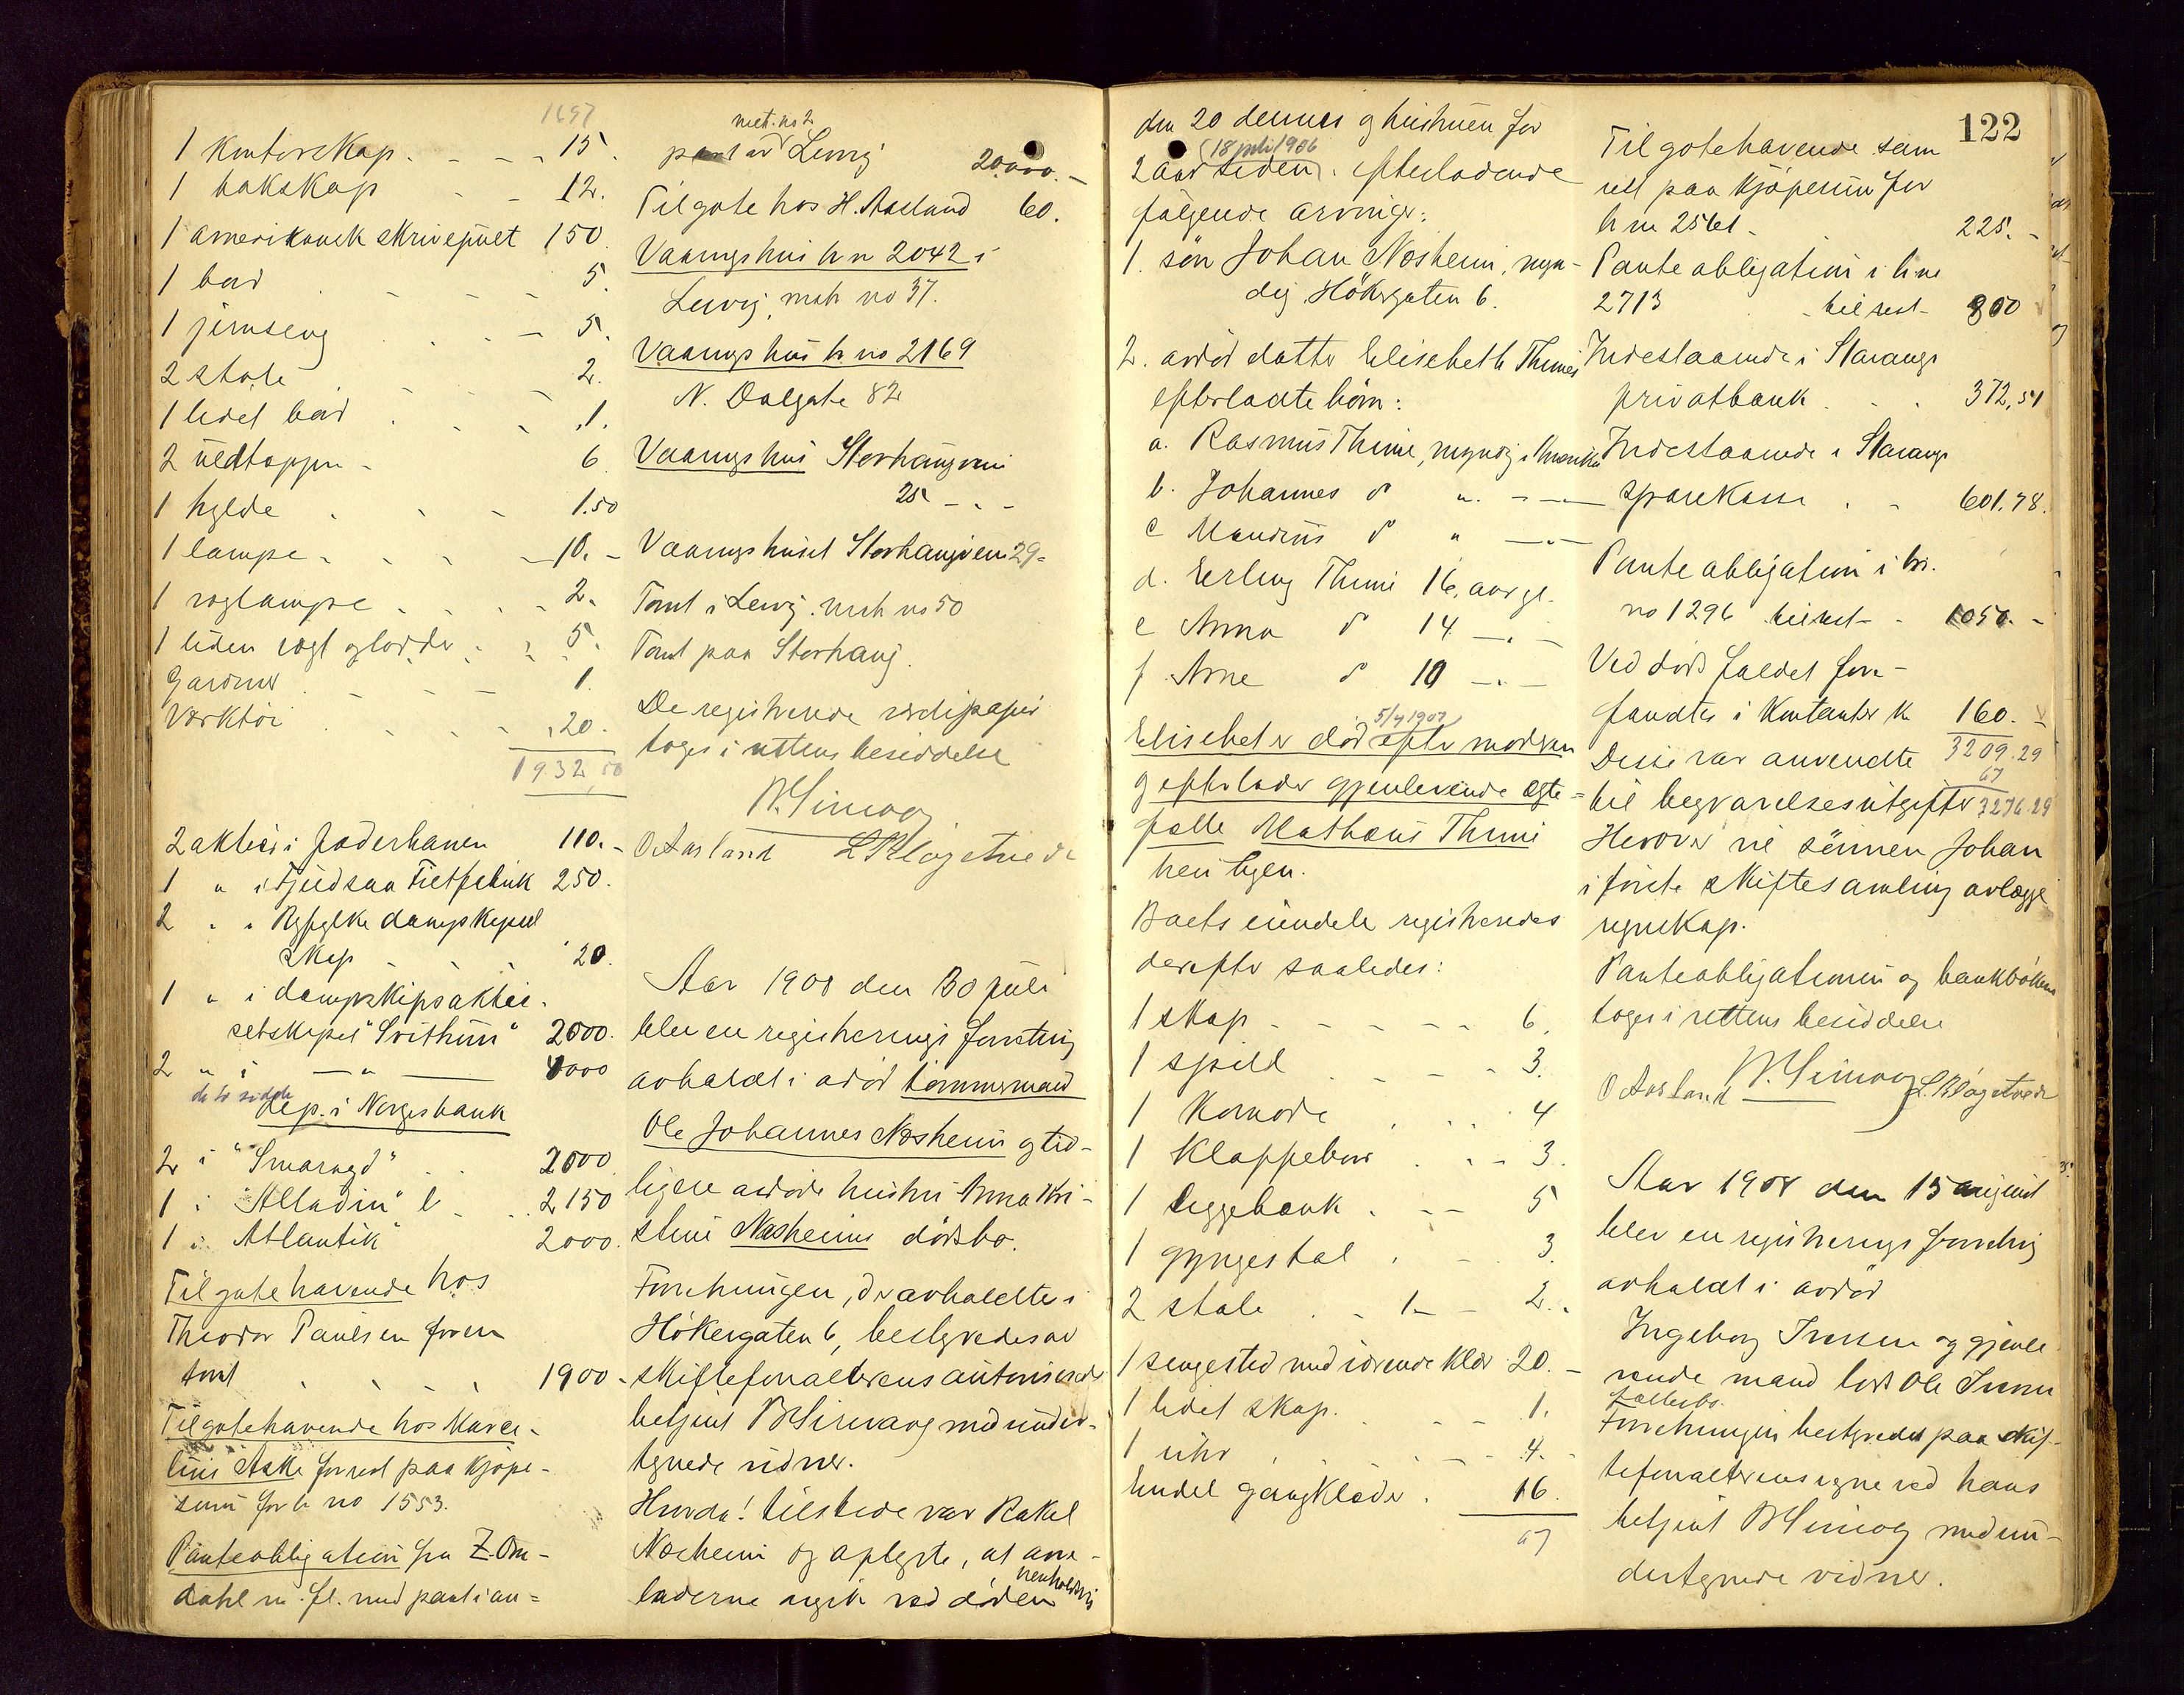 1697
1 Kontorskap. - - - 15.
1 bakskap - - 12.
1 amerikansk skrivepult 150
1 bord - - - 5.
1 jernseng - - - 5.
2 stole - - - 2.
1 lidet bord - - - 1.
2 uldtæpper - 6
1 hylde - - - 1.50
1 lampe - - - - 10. -
1 voglampe - - - - 2.
1 liden vogt og lodder - - 5.
Gardiner - - - 1.
Værktøi - - - 20.
1932,50
2 aktier i Jæderbanen 110. -
1 " i Fjeldsaa Filtfabrik 250.
2 " i Ryfylke dampskipsel
skap - - - 20.
1 " i dampskipsaktie-
selskapet "Svithun" 2000.
2 " i — " — 4000
de to sidste
dep. i Norges bank
2 i "Smaragd" - - 2000
1 i "Alladin" - - 2150
1 i "Atlantik" 2000.
Tilgotehavende hos
Theodor Paulsen for en
tomt - - - - 1900 -
Tilgotehavende hos Karee-
lius Aske for rest paa kjøpe-
sum for h no 1553.
Panteobligation fra Z. Om-
dahl m. fl. med pant i an-
mat. no 2
part av Lervig 20.000. -
Tilgote hos H. Aseland 60.
Vaaningshus h n 2042 i
Lervig, matr no 37.
Vaaningshus h no 2169
N. Dalgate 82
Vaaningshus Storhaugveien
25 - . -
Vaaningshuset Storhaugveien 29 -
Tomt i Lervig. matr no 50
Tomt paa Storhaug.
De registrerede værdipapir
toges i rettens besiddelse
B Sirevaag
O Aarland L Kløgetvedt
Aar 1908 den 30 juli
blev en registreringsforretning
avholdt i avdød tømmermand
Ole Johannes Næsheim og tid-
ligere avdøde hustru Anna Kri-
stine Næsheims dødsbo.
Forretningen, der avholdtes i
Høkergaten 6, bestyredes av
skifteforvalterens autoriserede
betjent B Sirevaag med under-
tegnede vidner.
Hvorda! tilstede var Rakel
Næsheim og oplyste, at avs-
henholdsvis
laderne avgik ved døden
122
den 20 dennes og hustruen for
(18 juli 1906
2 aar siden). efterladende
følgende arvinger:
1. søn Johan Næsheim, myn-
dig Høkergaten 6.
2. avdød datter Elisebeth Thimes
efterladte børn:
a. Rasmus Thime, myndig i Amerika
b. Johannes d " - —
c Maudius d " — " —
d. Erling Thime 16. aar gl.
e Anna d 14 — . —
f. Arne d 10 — . —
5/4 1907
Elisebet er død efter moderen
og efterlader gjenlevende ægte-
fælle Mathæus Thime
her i byen.
Boets eiendele registreredes
derefter saaledes:
1 skap - - - - - 6.
1 speil - - - - 3.
1 Komode - - - 4
1 Klappebord - - - 3.
1 leggebænk - - - 5
1 gyngestol - - 3.
2 stole - - 1 - - 2. -
1 sengested med værende klær 20. -
1 lidet skap. - - - 1.
1 uhr - - - 4. -
Endel gangklæder - 16.
67
Tilgotehavende som
rest paa kjøpesum for
h no 2561 - 225. -
Panteobligation i h no
2713 - til rest - 800
Indestaaende i Stavanger
privatbank - - - 372,51
Indestaaende i Stavanger
sparekasse - - 601.78.
Panteobligation i hr.
no 1296 til rest - - 1050. -
Ved dødsfaldet fore-
fandtes i Kontanter k 160. -
3209.29
Disse var anvendte
67
til begravelsesutgifter 3276.29
Herover vil sønnen Johan
i første skiftesamling avlægge
regnskap.
Panteobligationen og bankbøkene
toges i rettens besiddelse
B. Sirevaag
O Aarland L. Kløgetvedt
Aar 1908 den 15 august
blev en registreringsforretning
avholdt i avdød
Ingeborg Iversen og gjenle
vende mand lods Ole Iversens
fællesbo.
Forretningen bestyredes paa skif-
teforvalterens vegne ved hans
betjent B Sirevaag med un-
dertegnede vidner.